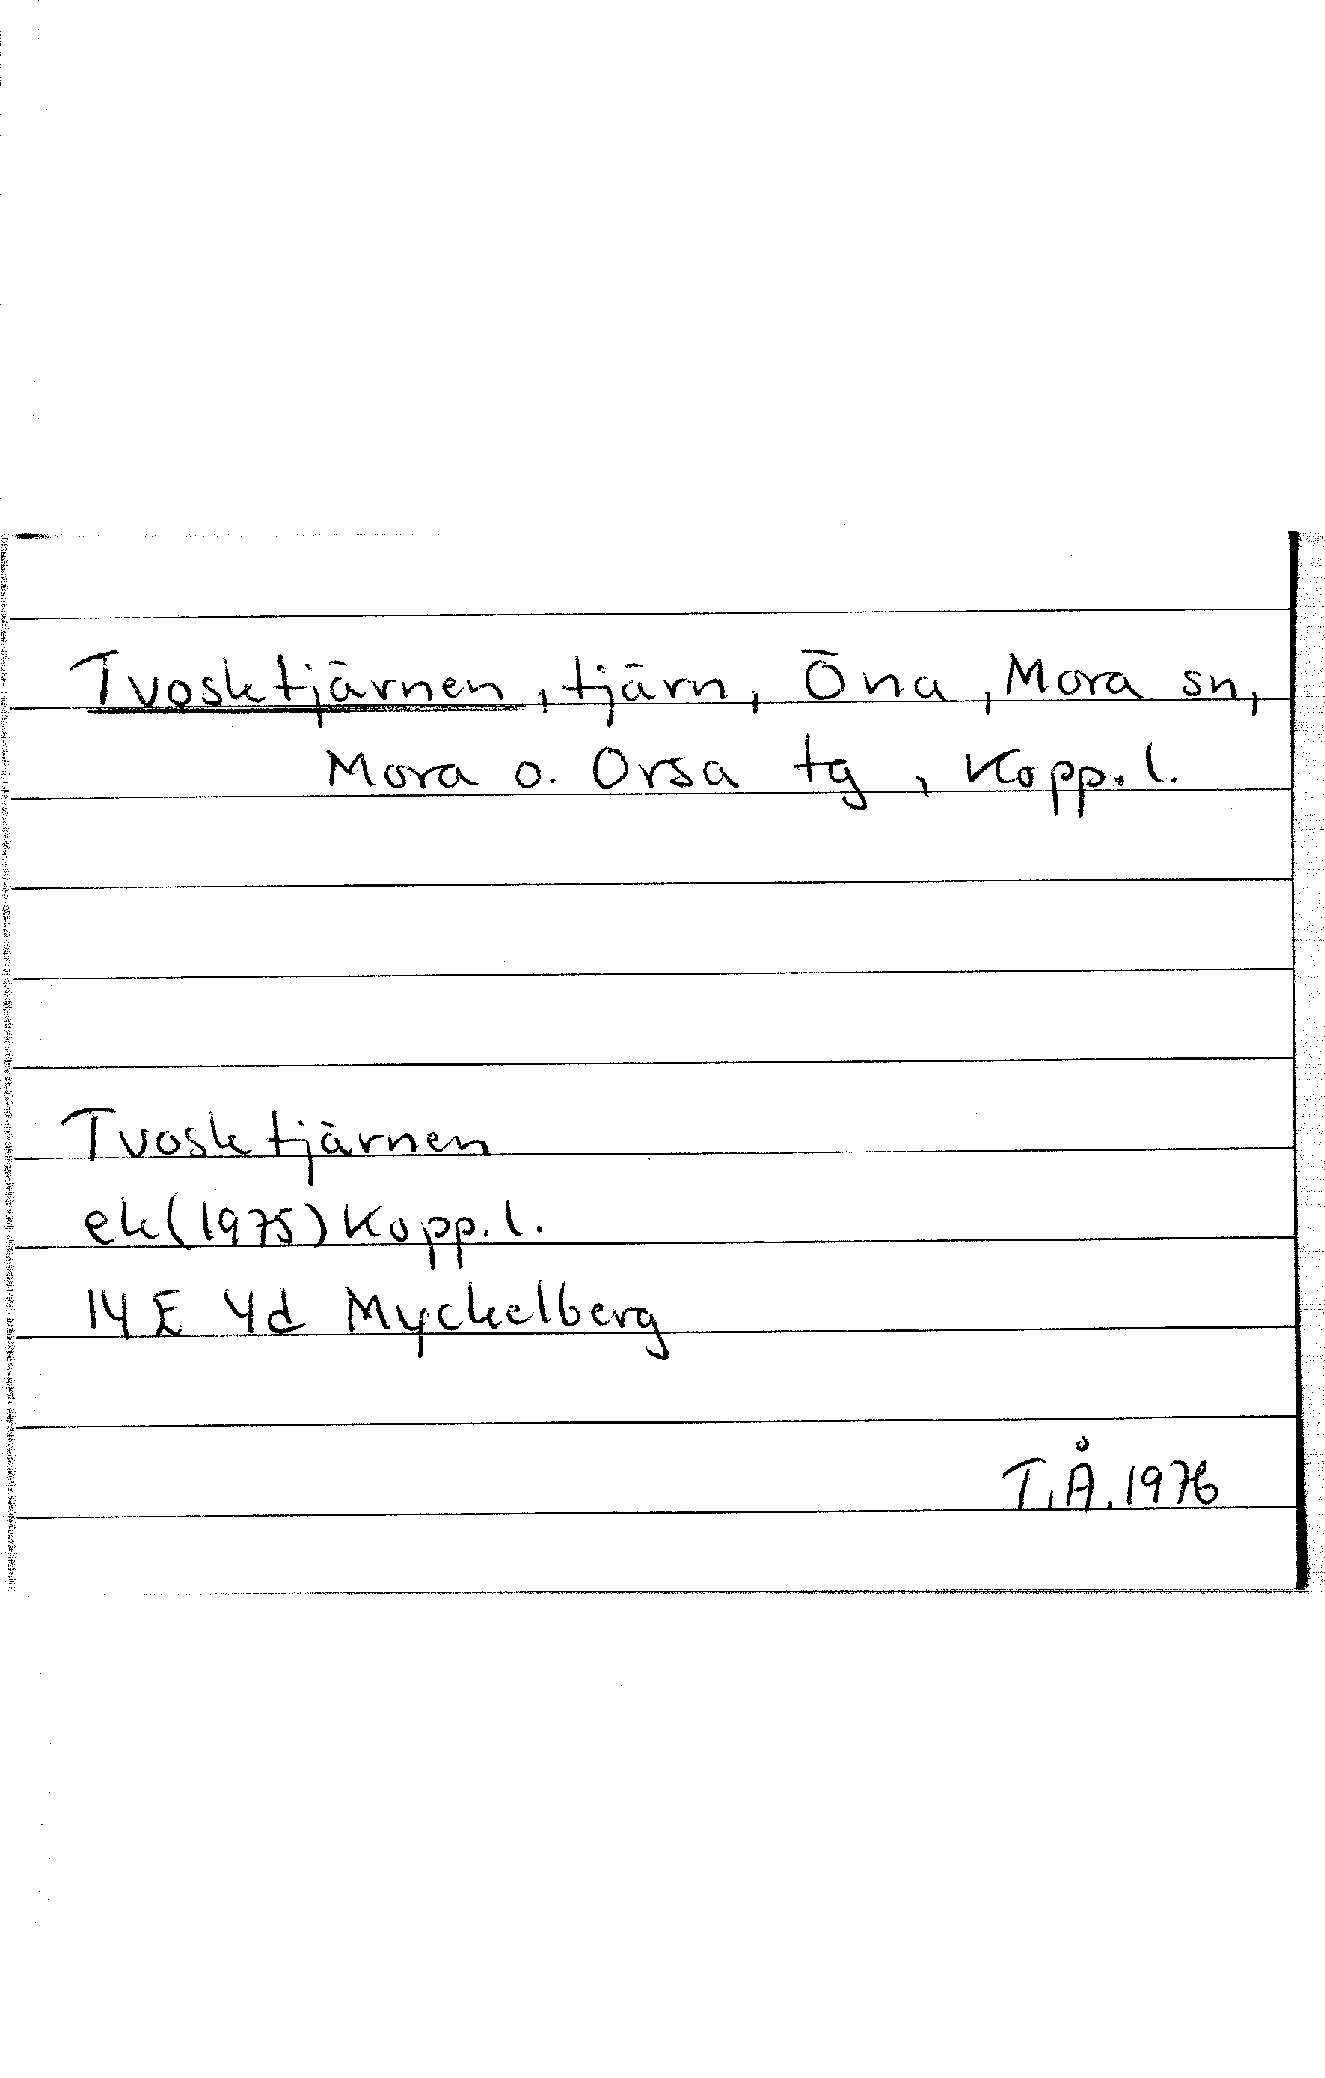 Tvosktjärnen, tjärn, Öna, Mora sn,
Mora o. Orsa tg, Kopp. l.
Tvosktjärnen
ek (1975) Kopp. l.
14 E 4d Myckelberg
T.Å. 1976